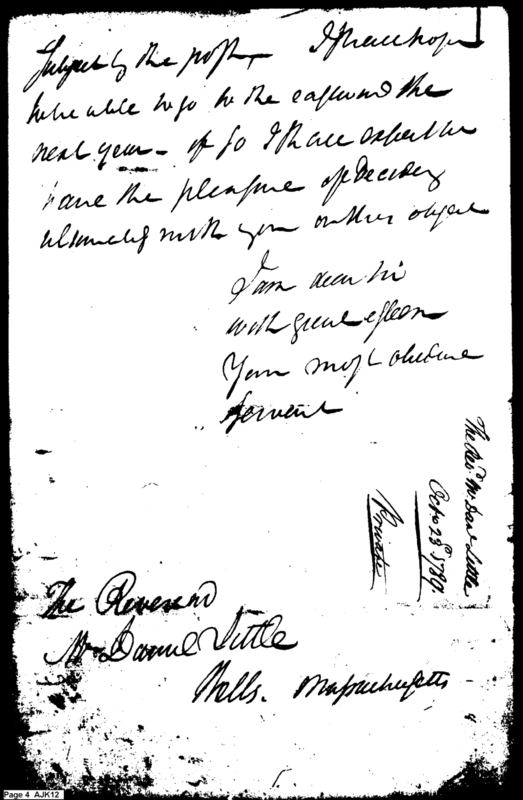 Subject by the post, I shall hope
to be able to go to the eastward the
next year — if so I shall expect to
have the pleasure of deciding
ultimately with you on this object
I am dear Sir
with great esteem
Your most obedient
Servent
The Revd. Mr Danl Little
Octo 23d 1789.
Private
The Reverend
Mr Daniel Little
Wells. Massachusetts
Page 4 AJK12